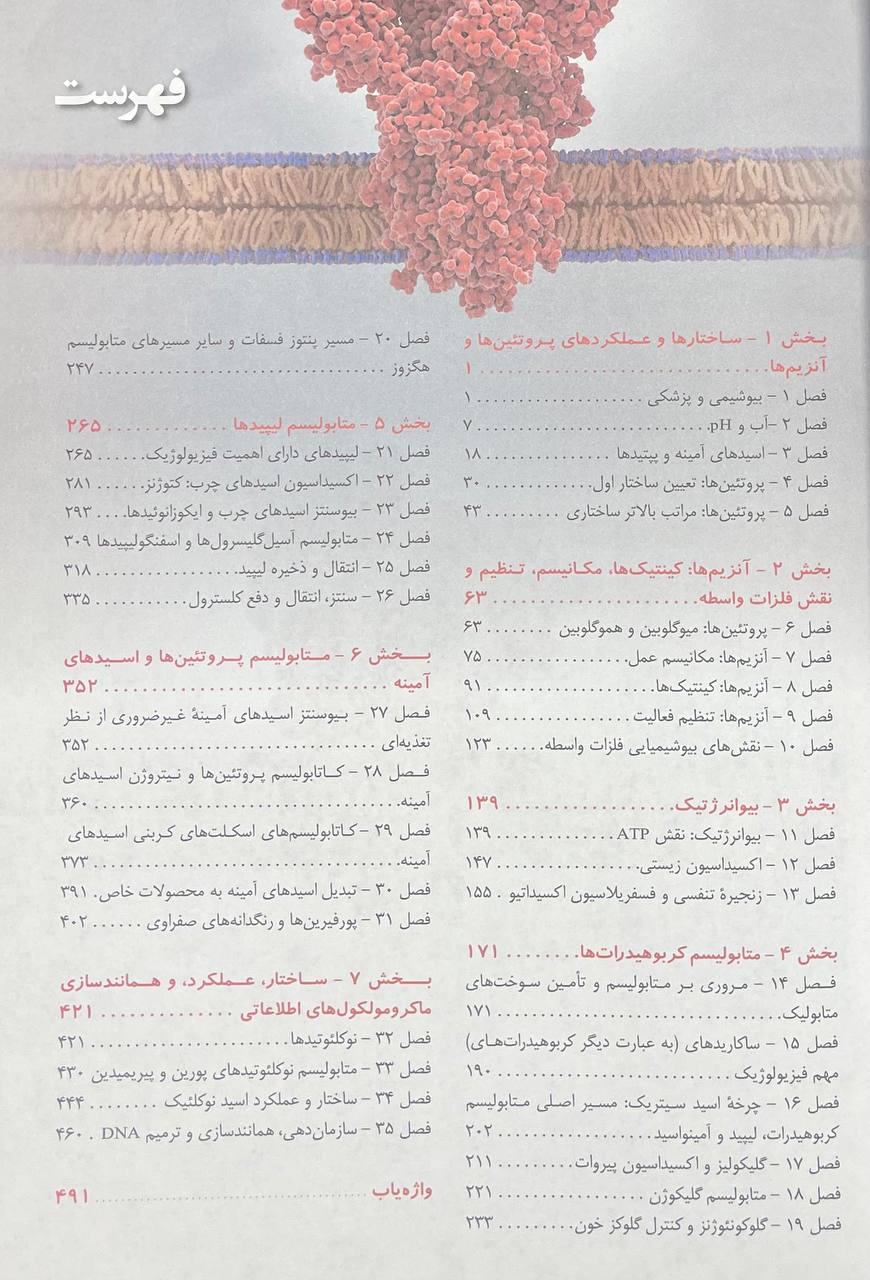 فهرست
بخش ۱ - ساختارها و عملکردهای پروتئین‌ها و
آنزیم‌ها.............................. ۱
فصل ۱ - بیوشیمی و پزشکی .................... ۱
فصل ۲ -آب و pH........................... ۷
فصل ۳ - اسیدهای آمینه و پپتیدها ............... ۱۸
فصل ۴ - پروتئین‌ها: تعیین ساختار اول............. ۳۰
فصل ۵ - پروتئین‌ها: مراتب بالاتر ساختاری ......... ۴۳
بخش ۲ - آنزیم‌ها: کینتیک‌ها، مکانیسم، تنظیم و
نقش فلزات واسطه..................... ۶۳
فصل ۶ - پروتئین‌ها: میوگلوبین و هموگلوبین ........ ۶۳
فصل ۷ - آنزیم‌ها: مکانیسم عمل................. ۷۵
فصل ۸ - آنزیم‌ها: کینتیک‌ها.................... ۹۱
فصل ۹ - آنزیم‌ها: تنظیم فعالیت ................ ۱۰۹
فصل ۱۰ - نقش‌های بیوشیمیایی فلزات واسطه...... ۱۲۳
بخش ۳ - بیوانرژتیک.................. ۱۳۹
فصل ۱۱ - بیوانرژتیک: نقش ATP.............. ۱۳۹
فصل ۱۲ - اکسیداسیون زیستی................. ۱۴۷
فصل ۱۳ - زنجیرهٔ تنفسی و فسفریلاسیون اکسیداتیو . ۱۵۵
بخش ۴ - متابولیسم کربوهیدرات‌ها......... ۱۷۱
فصل ۱۴ - مروری بر متابولیسم و تأمین سوخت‌های
متابولیک................................ ۱۷۱
فصل ۱۵ - ساکاریدهای (به عبارت دیگر کربوهیدرات‌های)
مهم فیزیولوژیک.......................... ۱۹۰
فصل ۱۶ - چرخهٔ اسید سیتریک: مسیر اصلی متابولیسم
کربوهیدرات، لیپید و آمینواسید................. ۲۰۲
فصل ۱۷ - گلیکولیز و اکسیداسیون پیروات.......... ۲۱۱
فصل ۱۸ - متابولیسم گلیکوژن ................. ۲۲۱
فصل ۱۹ - گلوکونئوژنز و کنترل گلوکز خون.......... ۲۳۳
فصل ۲۰ - مسیر پنتوز فسفات و سایر مسیرهای متابولیسم
هگزوز ................................ ۲۴۷
بخش ۵ - متابولیسم لیپیدها .............. ۲۶۵
فصل ۲۱ - لیپیدهای دارای اهمیت فیزیولوژیک...... ۲۶۵
فصل ۲۲ - اکسیداسیون اسیدهای چرب: کتوژنز...... ۲۸۱
فصل ۲۳ - بیوسنتز اسیدهای چرب و ایکوزانوئیدها.... ۲۹۳
فصل ۲۴ - متابولیسم آسیل‌گلیسرول‌ها و اسفنگولیپیدها ۳۰۹
فصل ۲۵ - انتقال و ذخیره لیپید................. ۳۱۸
فصل ۲۶ - سنتز، انتقال و دفع کلسترول........... ۳۳۵
بخش ۶ - متابولیسم پروتئین‌ها و اسیدهای
آمینه ............................ ۳۵۲
فصل ۲۷ - بیوسنتز اسیدهای آمینهٔ غیرضروری از نظر
تغذیه‌ای ............................... ۳۵۲
فصل ۲۸ - کاتابولیسم پروتئین‌ها و نیتروژن اسیدهای
آمینه.................................. ۳۶۰
فصل ۲۹ - کاتابولیسم‌های اسکلت‌های کربنی اسیدهای
آمینه.................................. ۳۷۳
فصل ۳۰ - تبدیل اسیدهای آمینه به محصولات خاص. ۳۹۱
فصل ۳۱ - پورفیرین‌ها و رنگدانه‌های صفراوی ...... ۴۰۲
بخش ۷ - ساختار، عملکرد، و همانندسازی
ماکرومولکول‌های اطلاعاتی .............. ۴۲۱
فصل ۳۲ - نوکلئوتیدها...................... ۴۲۱
فصل ۳۳ - متابولیسم نوکلئوتیدهای پورین و پیریمیدین ۴۳۰
فصل ۳۴ - ساختار و عملکرد اسید نوکلئیک ........ ۴۴۴
فصل ۳۵ - سازمان‌دهی، همانندسازی و ترمیم DNA . ۴۶۰
واژه‌یاب ........................................ ۴۹۱